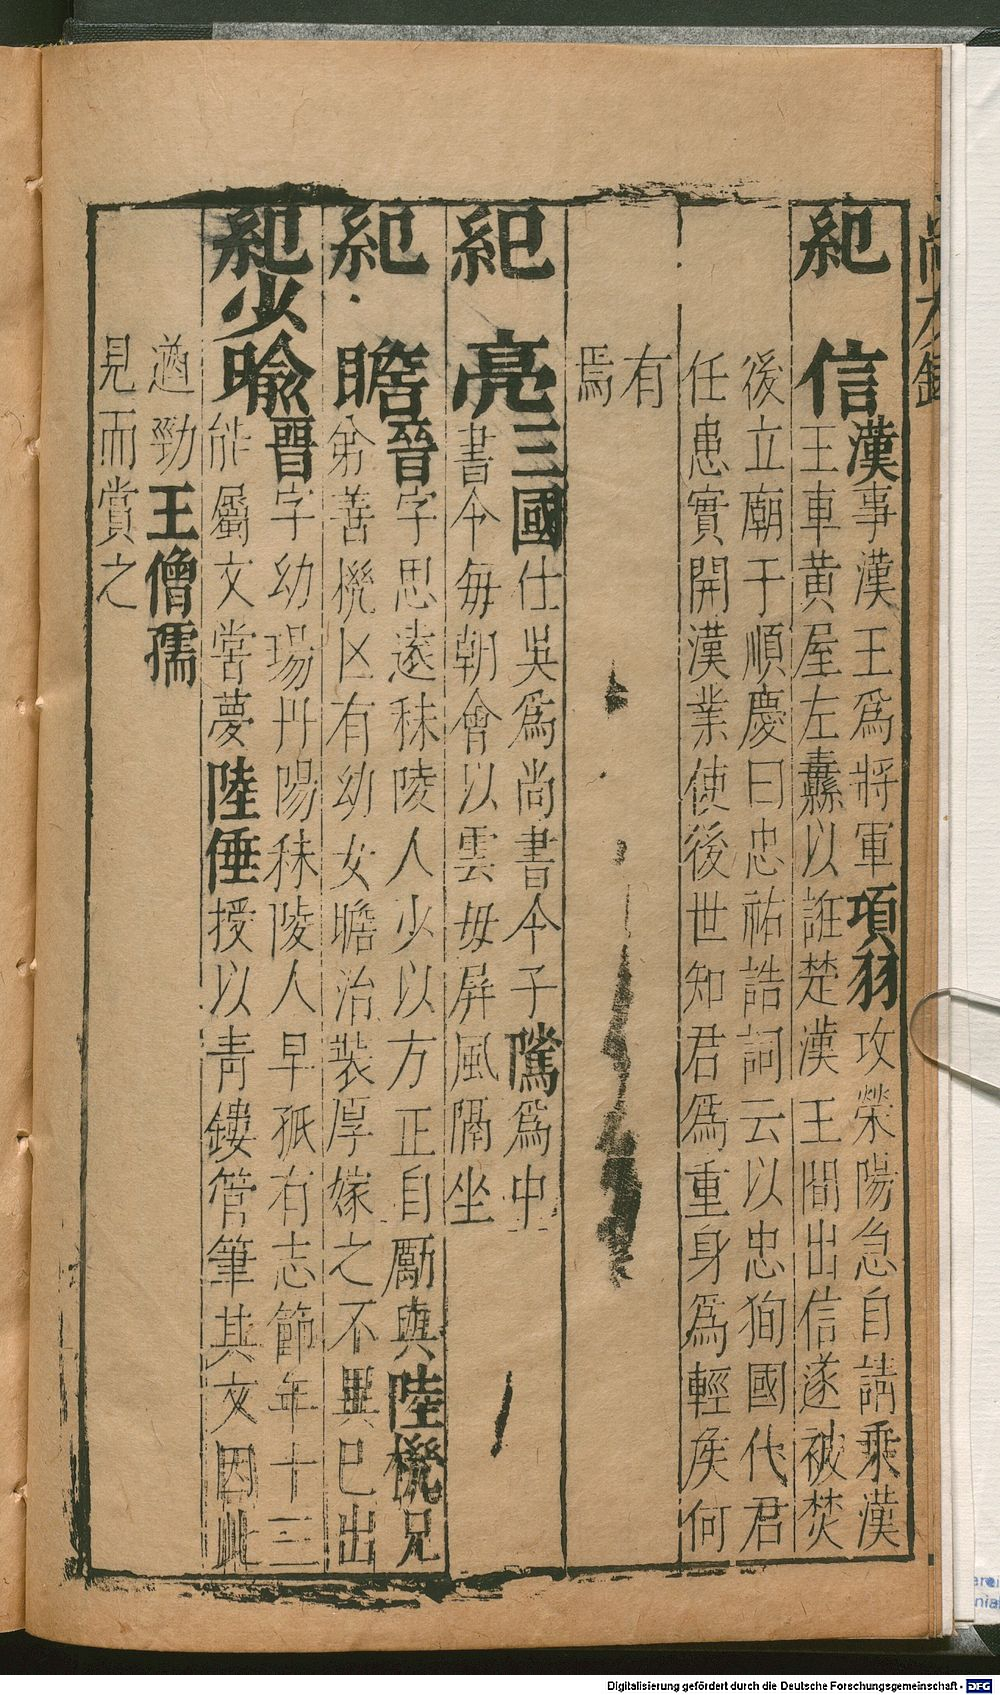 紀　信漢事漢王爲將軍項羽攻滎陽急自請乘漢
王車黄屋左纛以誑楚漢王間出信遂被焚
後立廟于順慶曰忠祐誥詞云以忠狥國代君
任患實開漢業使後世知君爲重身爲輕矦何
有
焉
紀　亮三國仕吳爲尚書令子隲爲中
書令每朝會以雲母屏風隔坐
紀　瞻晉字思遠秣陵人少以方正自厲與陸機兄
弟善機凶有幼女瞻治裝厚嫁之不異已出
紀少瑜晋字幼瑒丹陽秣陵人早孤有志節年十三
能屬文嘗夢陸倕授以青鏤管筆其文因此
遒勁王僧孺
見而賞之
尚
Digitalisierung gefördert durch die Deutsche Forschungsgemeinschaft - DFG